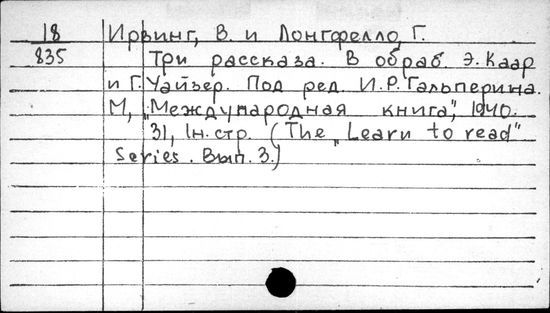 18 Ирвинг, В. и Лонгфелло, Г.
835 Три рассказа. В обраб. Э. Каар
и Г. Уайзер. Под ред. И.Р. Гальперина.
М, „Международная книга", 1940.
31, 1н. стр. (The „Learn to read"
Series. Вып. 3.)